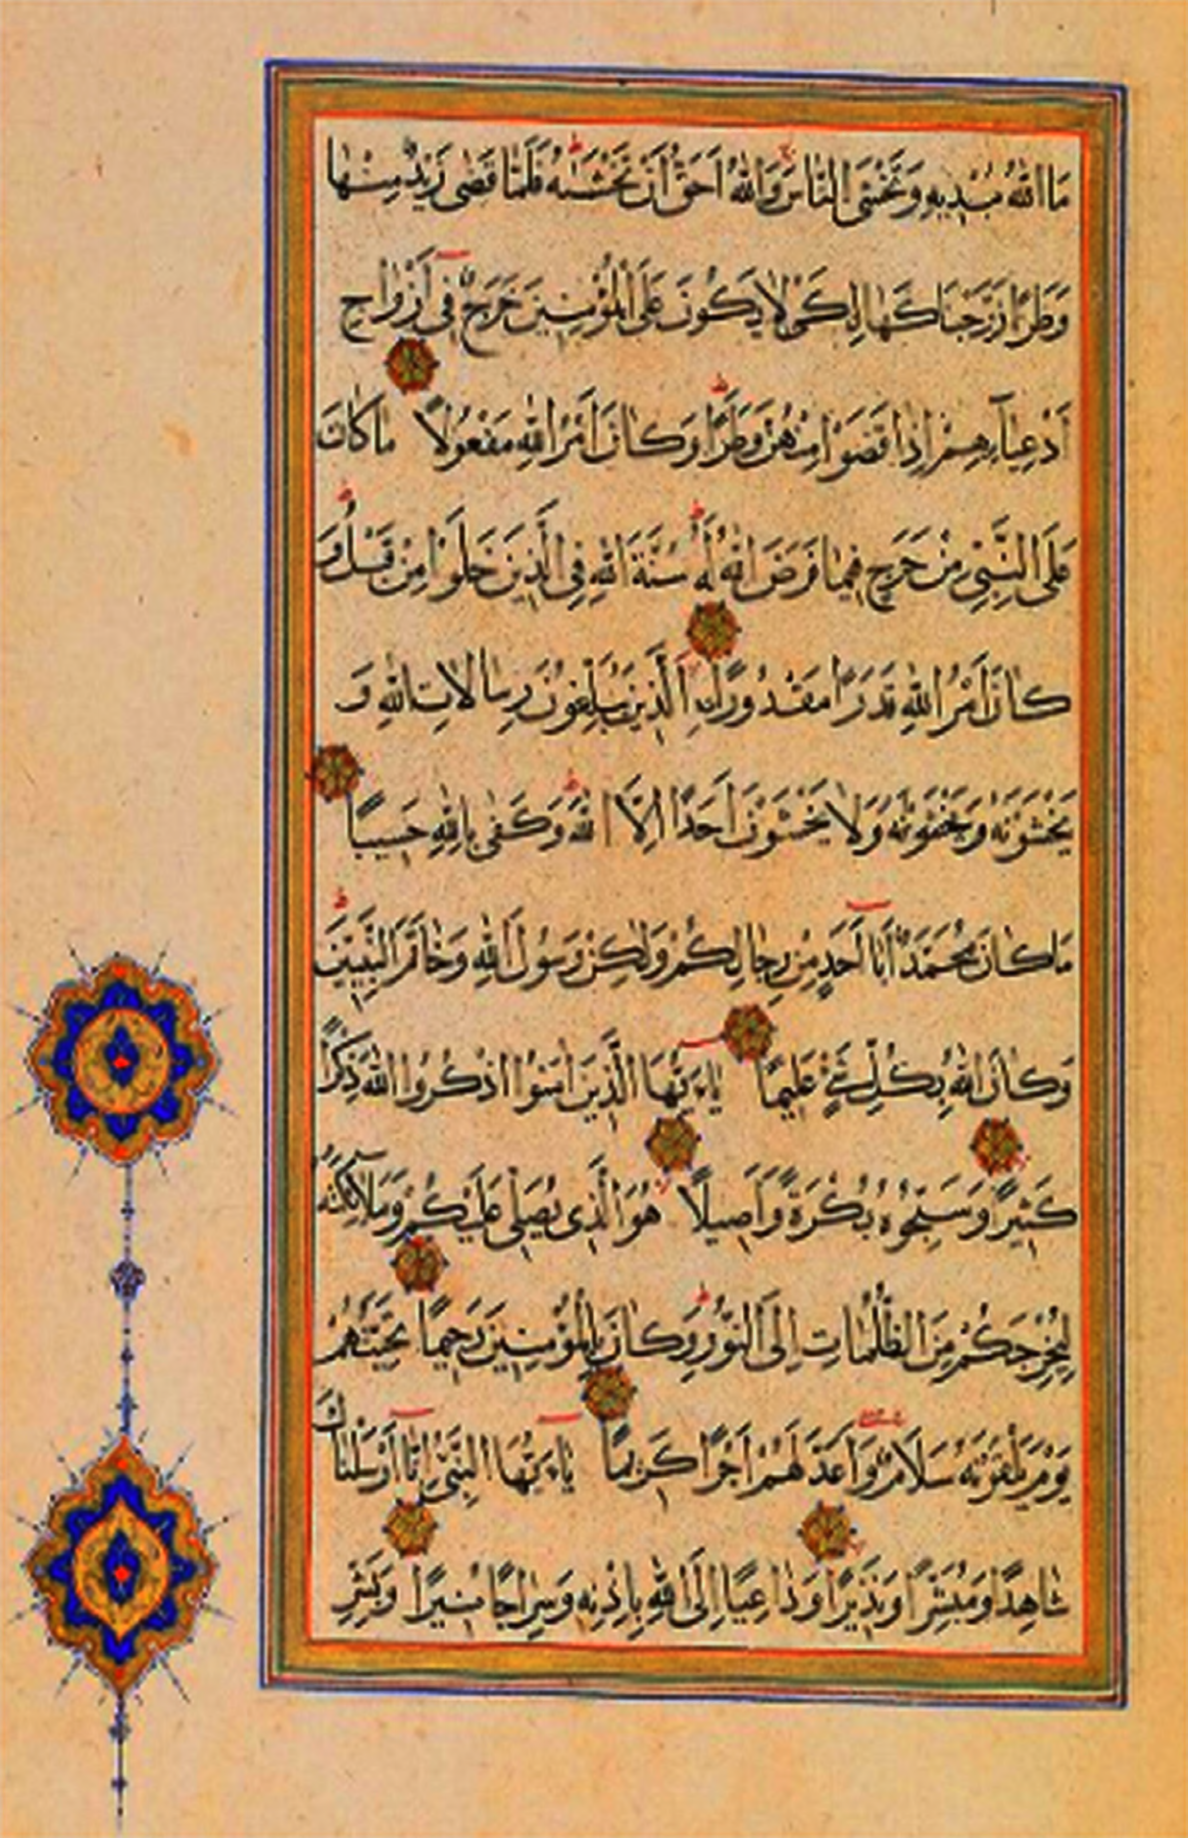 مَا اللهُ مُبْدِيهِ وَتَخْشَى النَّاسَ وَاللهُ اَحَقُّ اَنْ تَخْشٰيهُ فَلَمَّا قَضٰى زَيْدٌ مِنْهَا
وَطَرًا زَوَّجْنَاكَهَا لِكَىْ لَا يَكُونَ عَلَى الْمُؤْمِنِينَ حَرَجٌ فِى اَزْوَاجِ
اَدْعِيَآئِهِمْ اِذَا قَضَوْا مِنْهُنَّ وَطَرًا وَكَانَ اَمْرُ اللهِ مَفْعُولًا مَا كَانَ
عَلَى النَّبِىِّ مِنْ حَرَجٍ فِيمَا فَرَضَ اللهُ لَهُ سُنَّةَ اللهِ فِى الَّذِينَ خَلَوْا مِنْ قَبْلُ وَ
كَانَ اَمْرُ اللهِ قَدَرًا مَقْدُورًا الَّذِينَ يُبَلِّغُونَ رِسَالَاتِ اللهِ وَ
يَخْشَوْنَهُ وَيَخْفَوْنَهُ وَلَا يَخْشَوْنَ اَحَدًا اِلَّا اللهَ وَكَفٰى بِاللهِ حَسِيبًا
مَا كَانَ مُحَمَّدٌ اَبَا اَحَدٍ مِنْ رِجَالِكُمْ وَلٰكِنْ رَسُولَ اللهِ وَخَاتَمَ النَّبِيِّينَ
وَكَانَ اللهُ بِكُلِّ شَىْءٍ عَلِيمًا يَاءَيُّهَا الَّذِينَ اٰمَنُوا اذْكُرُوا اللهَ ذِكْرًا
كَثِيرًا وَسَبِّحُوهُ بُكْرَةً وَاَصِيلًا هُوَ الَّذِى يُصَلِّى عَلَيْكُمْ وَمَلَآئِكَتُهُ
لِيُخْرِجَكُمْ مِنَ الظُّلُمَاتِ اِلَى النُّورِ وَكَانَ بِالْمُؤْمِنِينَ رَحِيمًا تَحِيَّتُهُمْ
يَوْمَ يَلْقَوْنَهُ سَلَامٌ وَاَعَدَّ لَهُمْ اَجْرًا كَرِيمًا يَاءَيُّهَا النَّبِىُّ اِنَّا اَرْسَلْنَاكَ
شَاهِدًا وَمُبَشِّرًا وَنَذِيرًا وَدَاعِيًا اِلَى اللهِ بِاِذْنِهِ وَسِرَاجًا مُنِيرًا وَبَشِّرِ